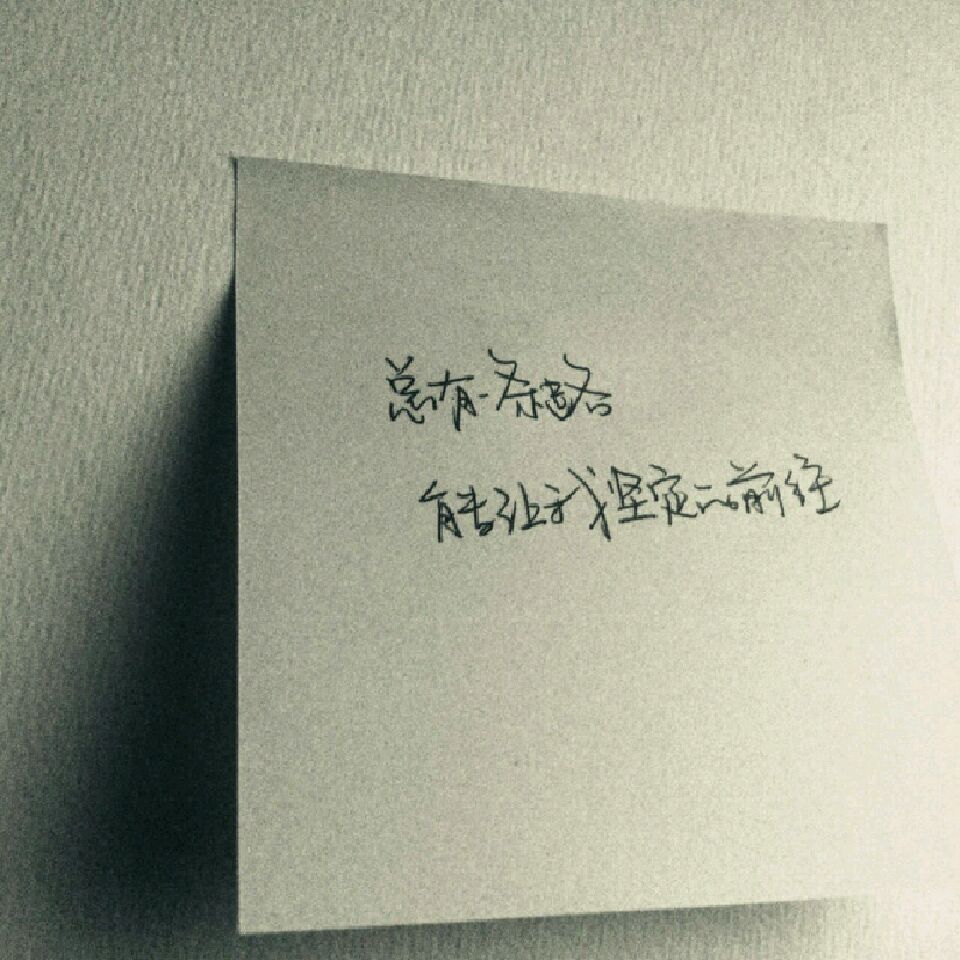 总有一条路
能够让我坚定的前往